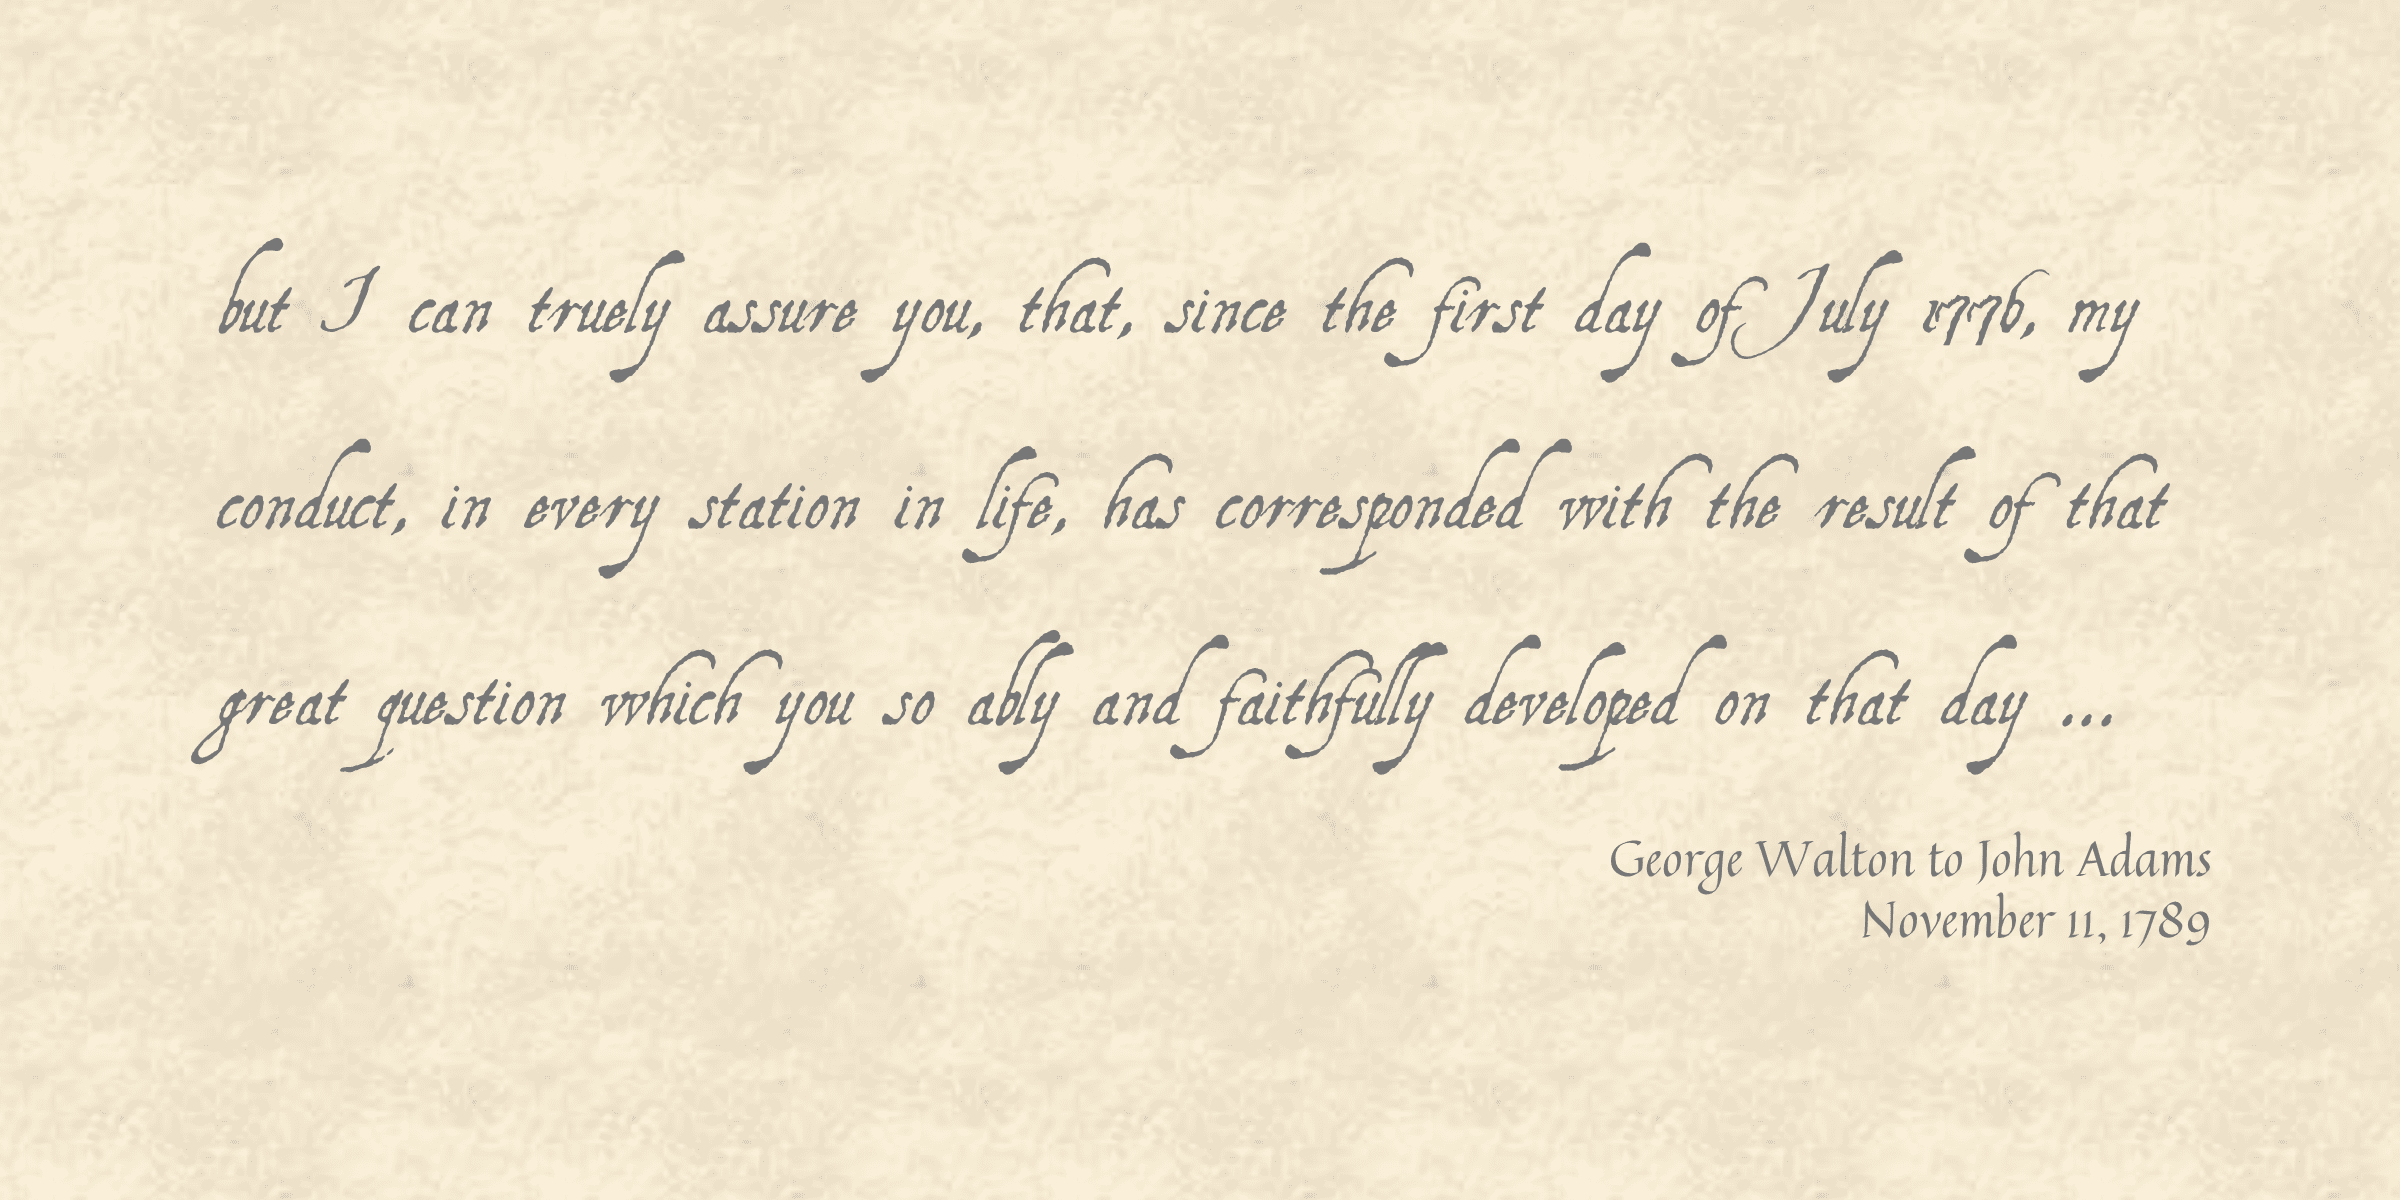 but I can truely assure you, that, since the first day of July 1776, my
conduct, in every station in life, has corresponded with the result of that
great question which you so ably and faithfully developed on that day ...
George Walton to John Adams
November 11, 1789